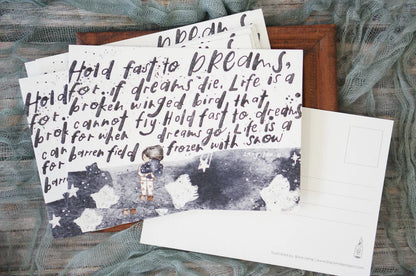 DREAMS,
Hold fast to DREAMS,
for if dreams die, Life is a
broken winged bird, that
cannot fly. Hold fast to dreams
for when dreams go, Life is a
barren field frozen with snow
Hold
for
brok
can
for
barr
Illustrated by